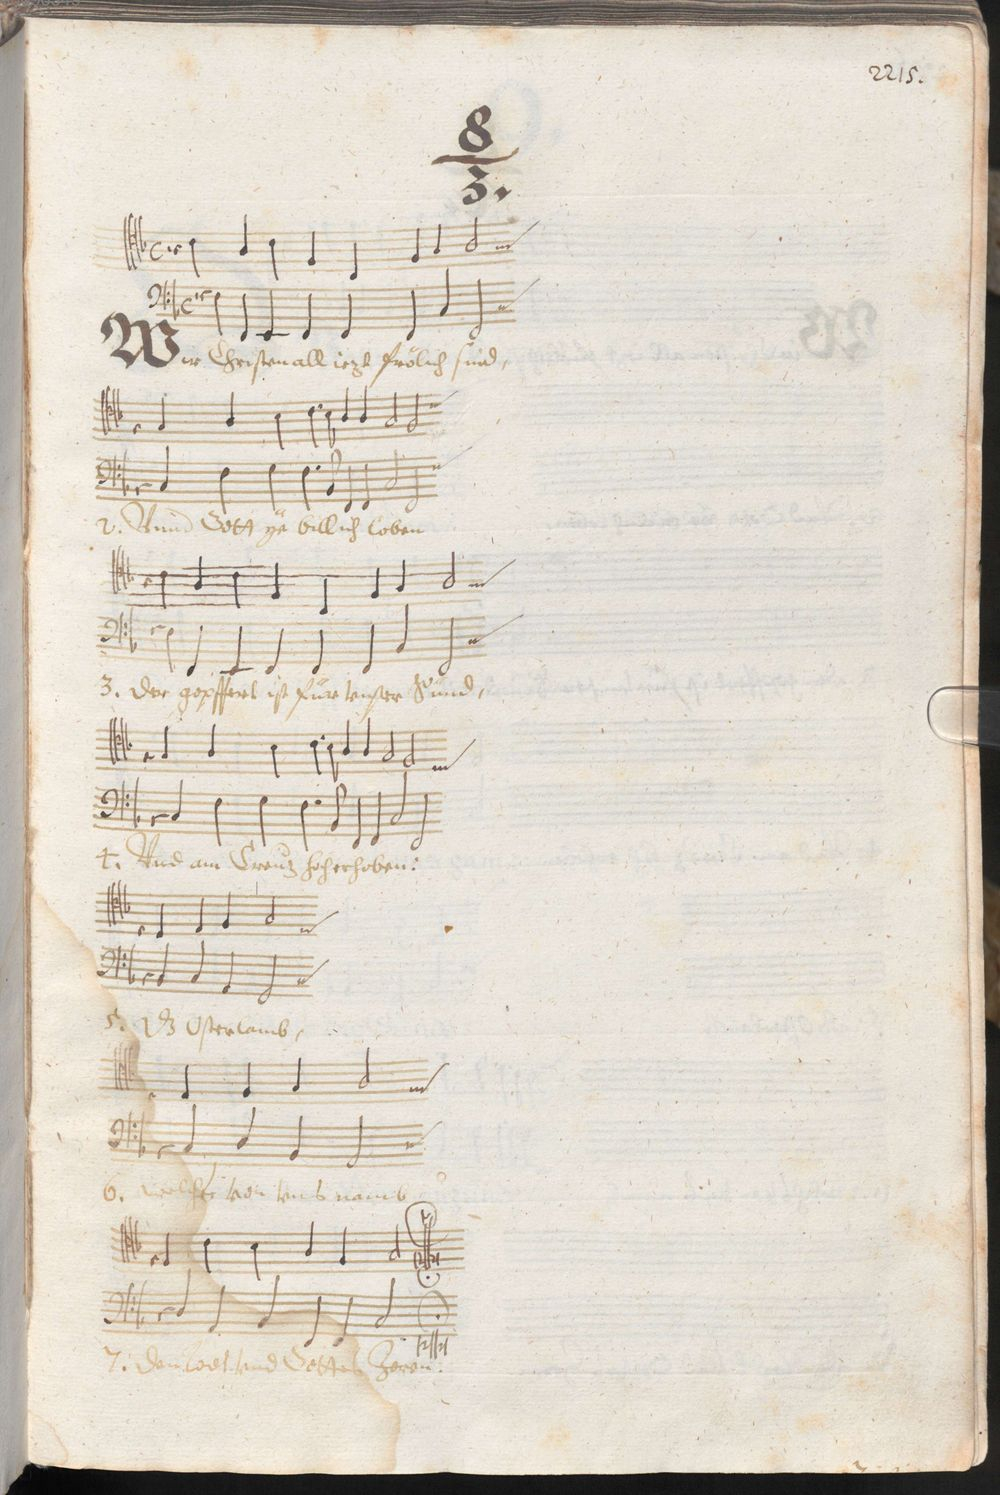 2215.
8
3.
Wir Christen all ietzt frölich sind,
2. Vnnd Gott ye billich loben
3. Der gopffert ist für vnser Sünd,
4. Vnd am Creutz hoch erhoben:
5. Dz Osterlamb,
6. welches von vns namb
7. Den todt vnd Gottes Zoren: